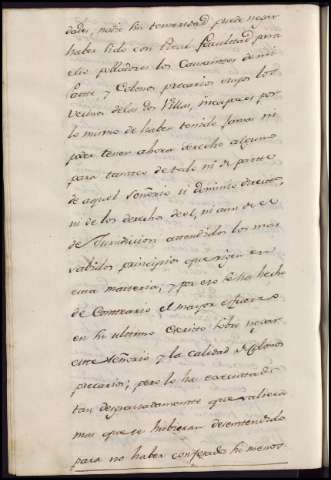 dades, nadie sin temeridad puede negar
haber sido con Real facultad para
ello pobladores los Causantes de mi
Parte y Colonos precarios suyos los
Vecinos de las dos Villas, incapaces por
lo mismo de haber tenido jamas ni
poder tener ahora derecho alguno
para tanteo de todo ni de parte
de aquel Señorio ni dominio directo,
ni de los derechos de el, ni aun de el
de Jurisdicion attendidos los mas
validos principios que rigen en
esta matteria; y por eso se ha hecho
de Contrario el mayor esfuerzo
en su ultimo Escrito sobre negar
este Señorio y la calidad de Colonos
precarios; pero lo ha executtado
tan desgraciadamente que valiera
mas que se hubieran desentendido
para no haber confesado su menos